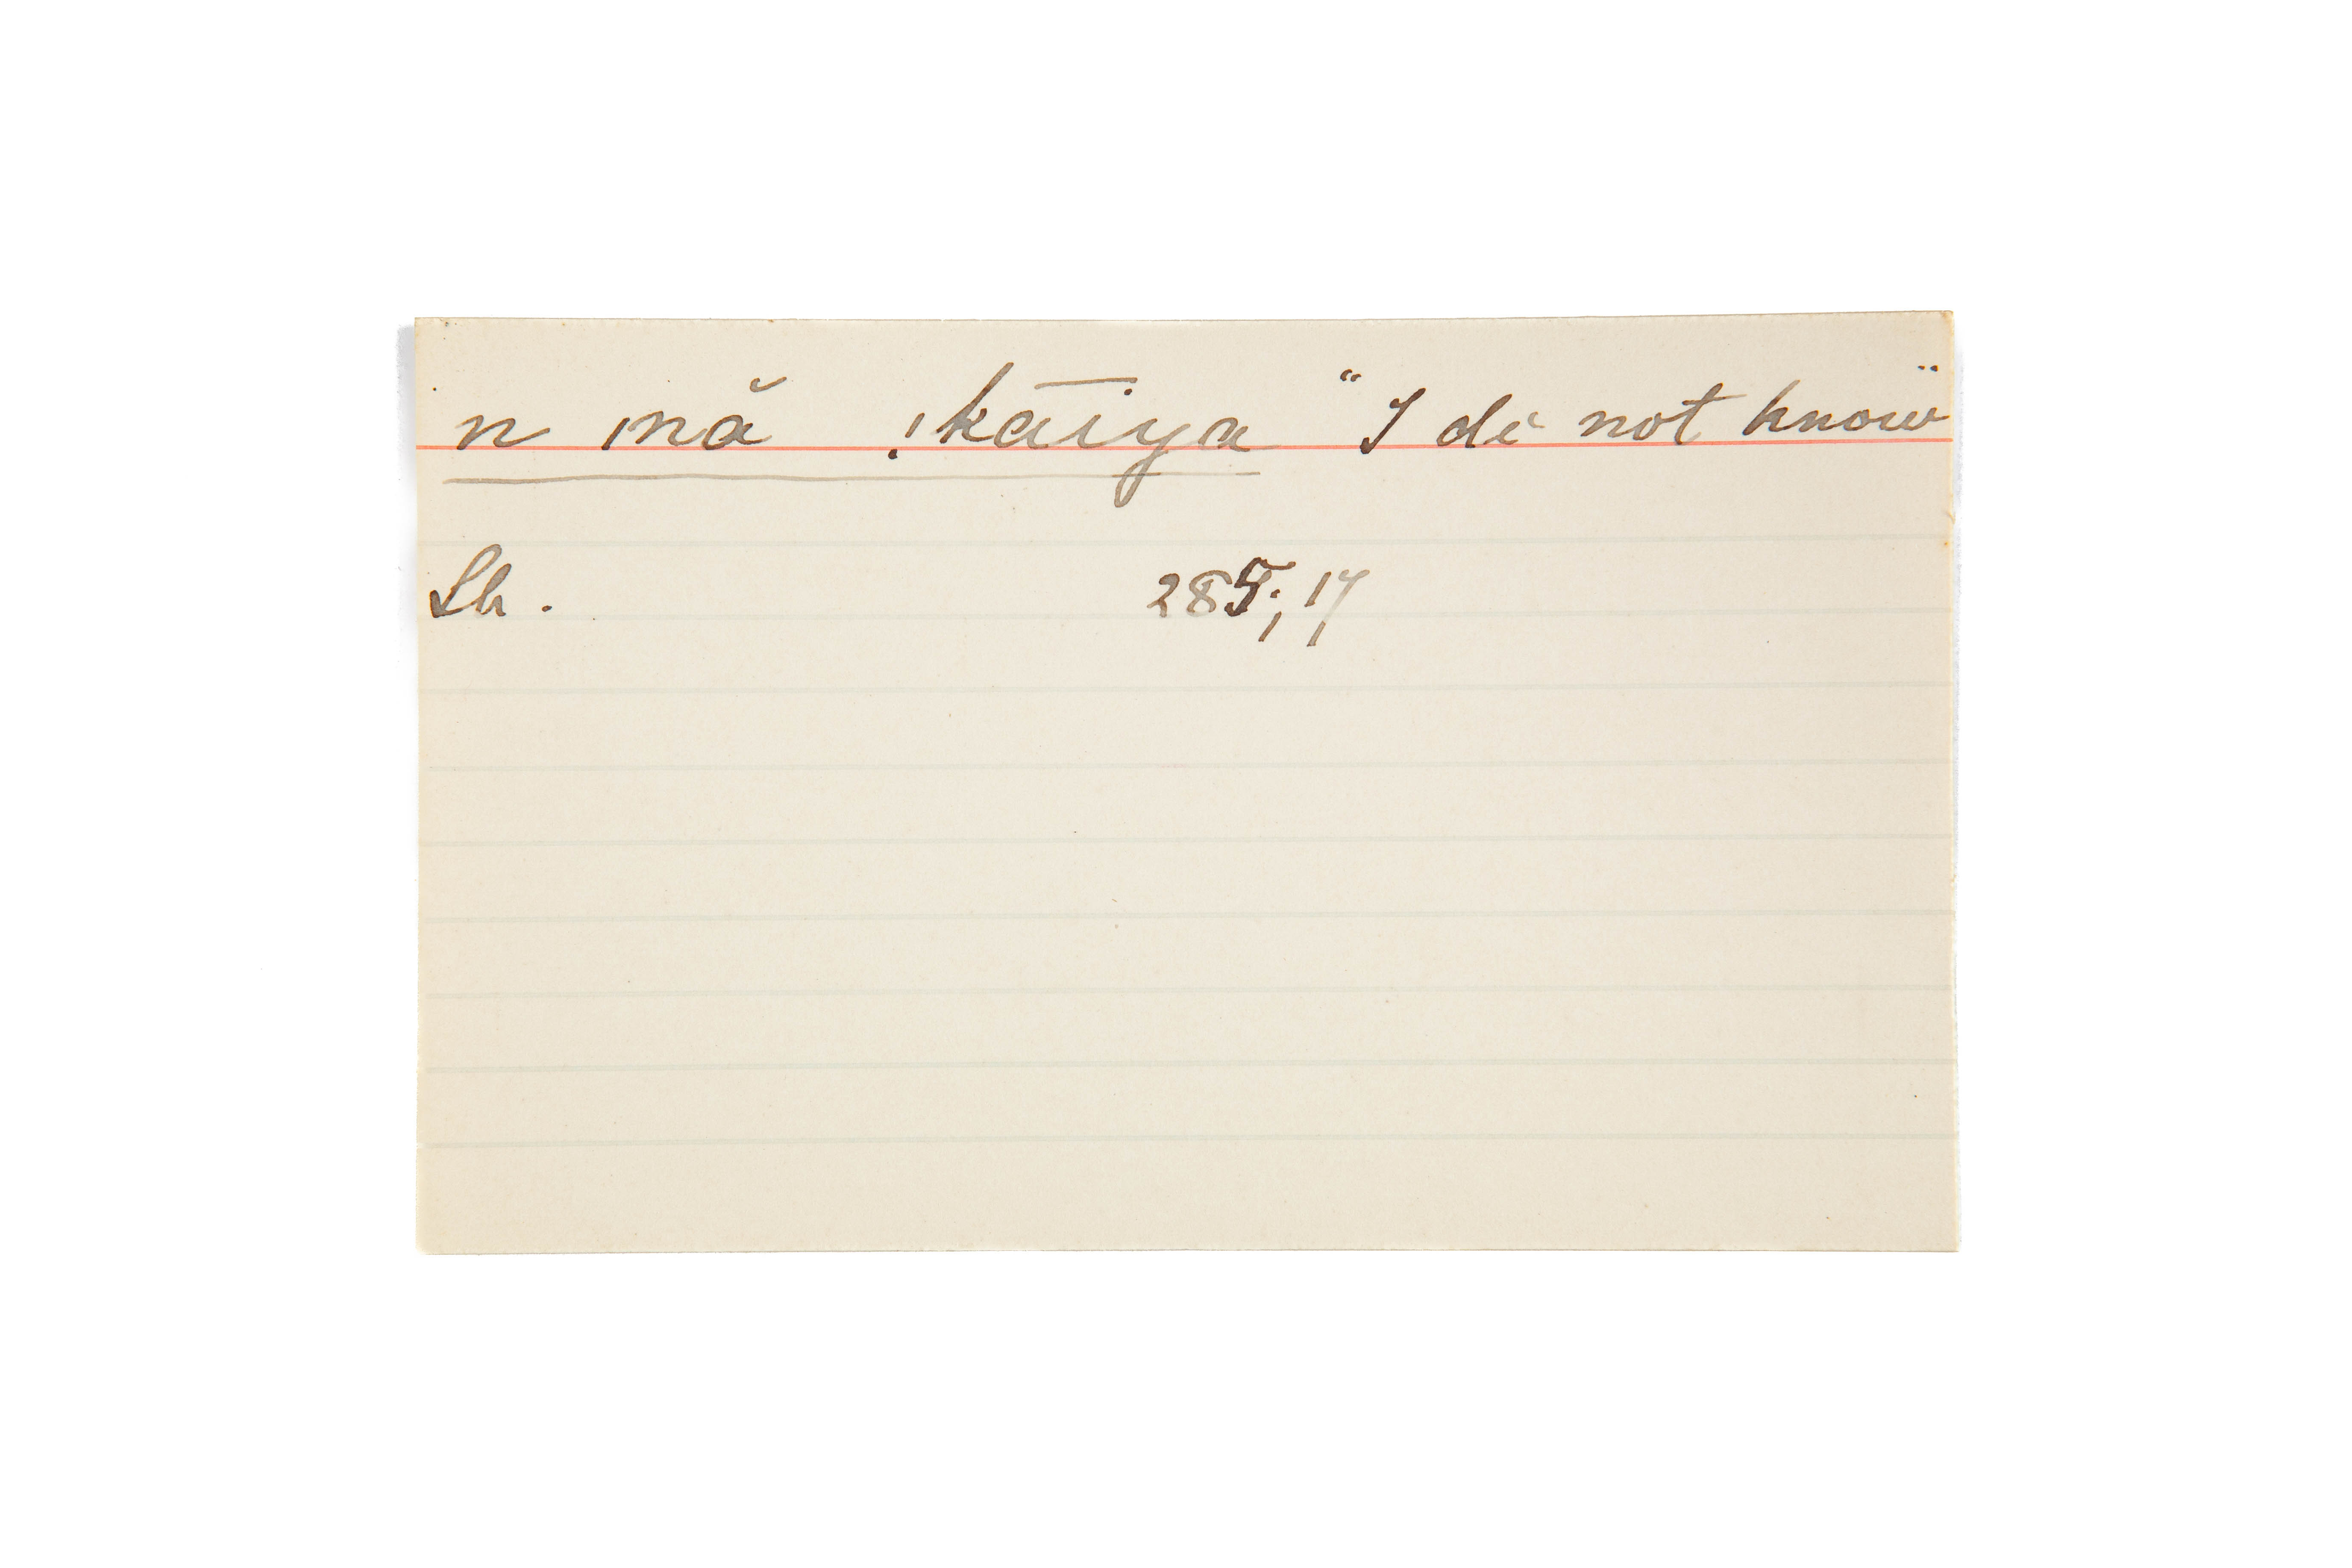 n ınă !kāīya "I do not know"
Lb. 285; 17